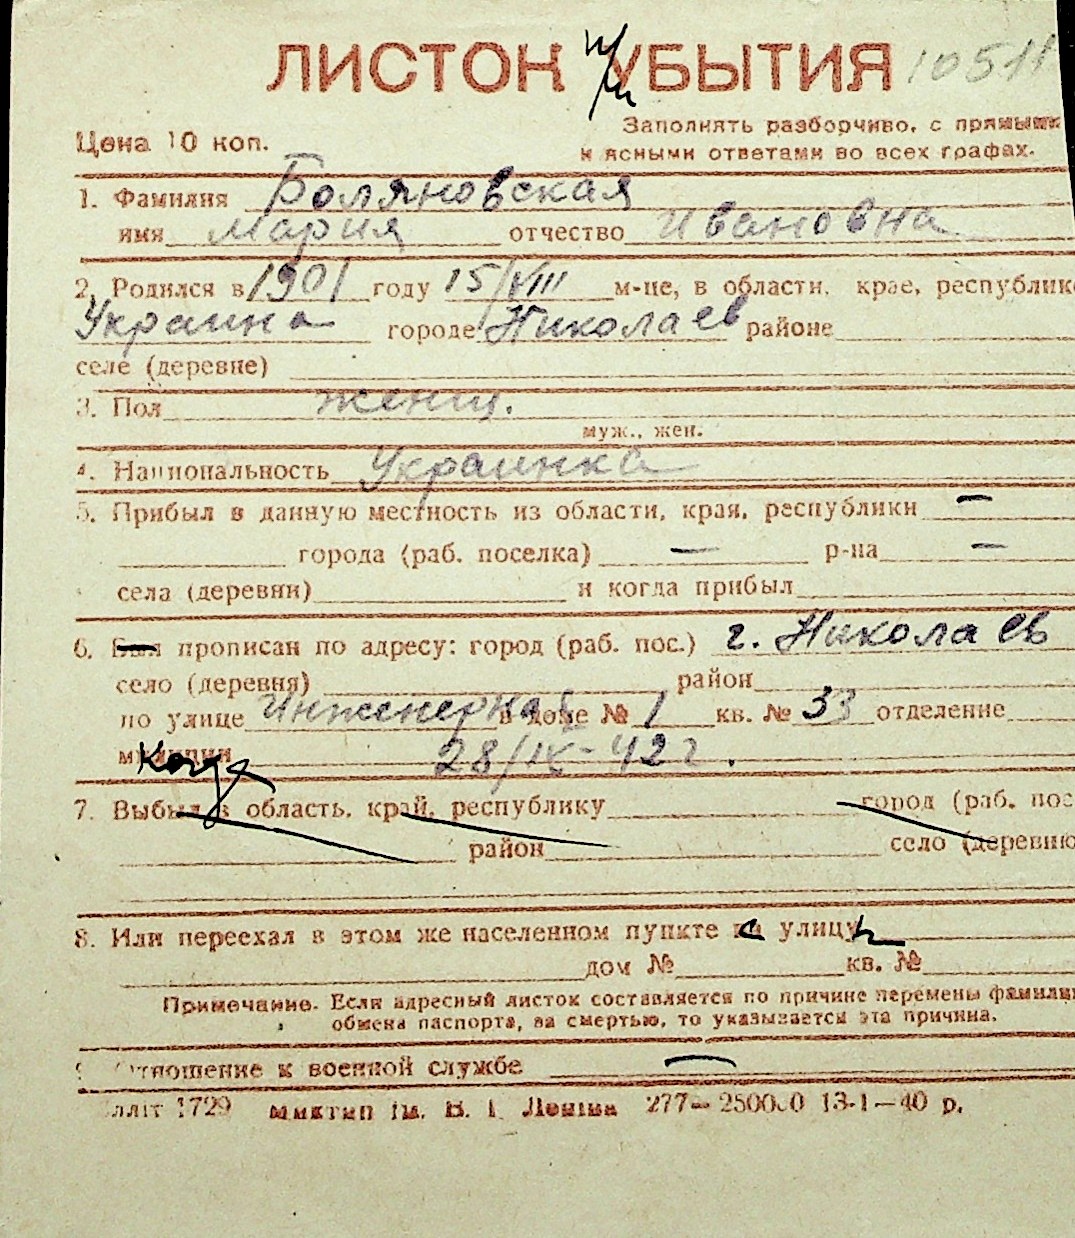 ЛИСТОК УБЫТИЯ 10511
Заполнять разборчиво, с прямыми
Цена 10 коп.
и ясными ответами во всех графах.
1. Фамилия Боляновская
имя Мария отчество Ивановна
2. Родился в 1901 году 15/VIII м-це, в области, крае, республике
Украина городе Николаев районе
селе (деревне)
3. Пол женщ.
муж., жен.
4. Национальность Украинка
5. Прибыл в данную местность из области, края, республики —
города (раб. поселка) — р-на —
села (деревни) и когда прибыл
6. Был прописан по адресу: город (раб. пос.) г. Николаев
село (деревня) район
по улице Инженерная в доме № 1 кв. № 33 отделение
милиции Когда 28/IX-42 г.
7. Выбыл в область, край, республику город (раб. пос
район село (деревню
8. Или переехал в этом же населенном пункте с улицы
дом № кв. №
Примечание. Если адресный листок составляется по причине перемены фамилии
обмена паспорта, за смертью, то указывается эта причина.
Отношение к военной службе —
1729 Ленина 277—250000 13-1—40 р.